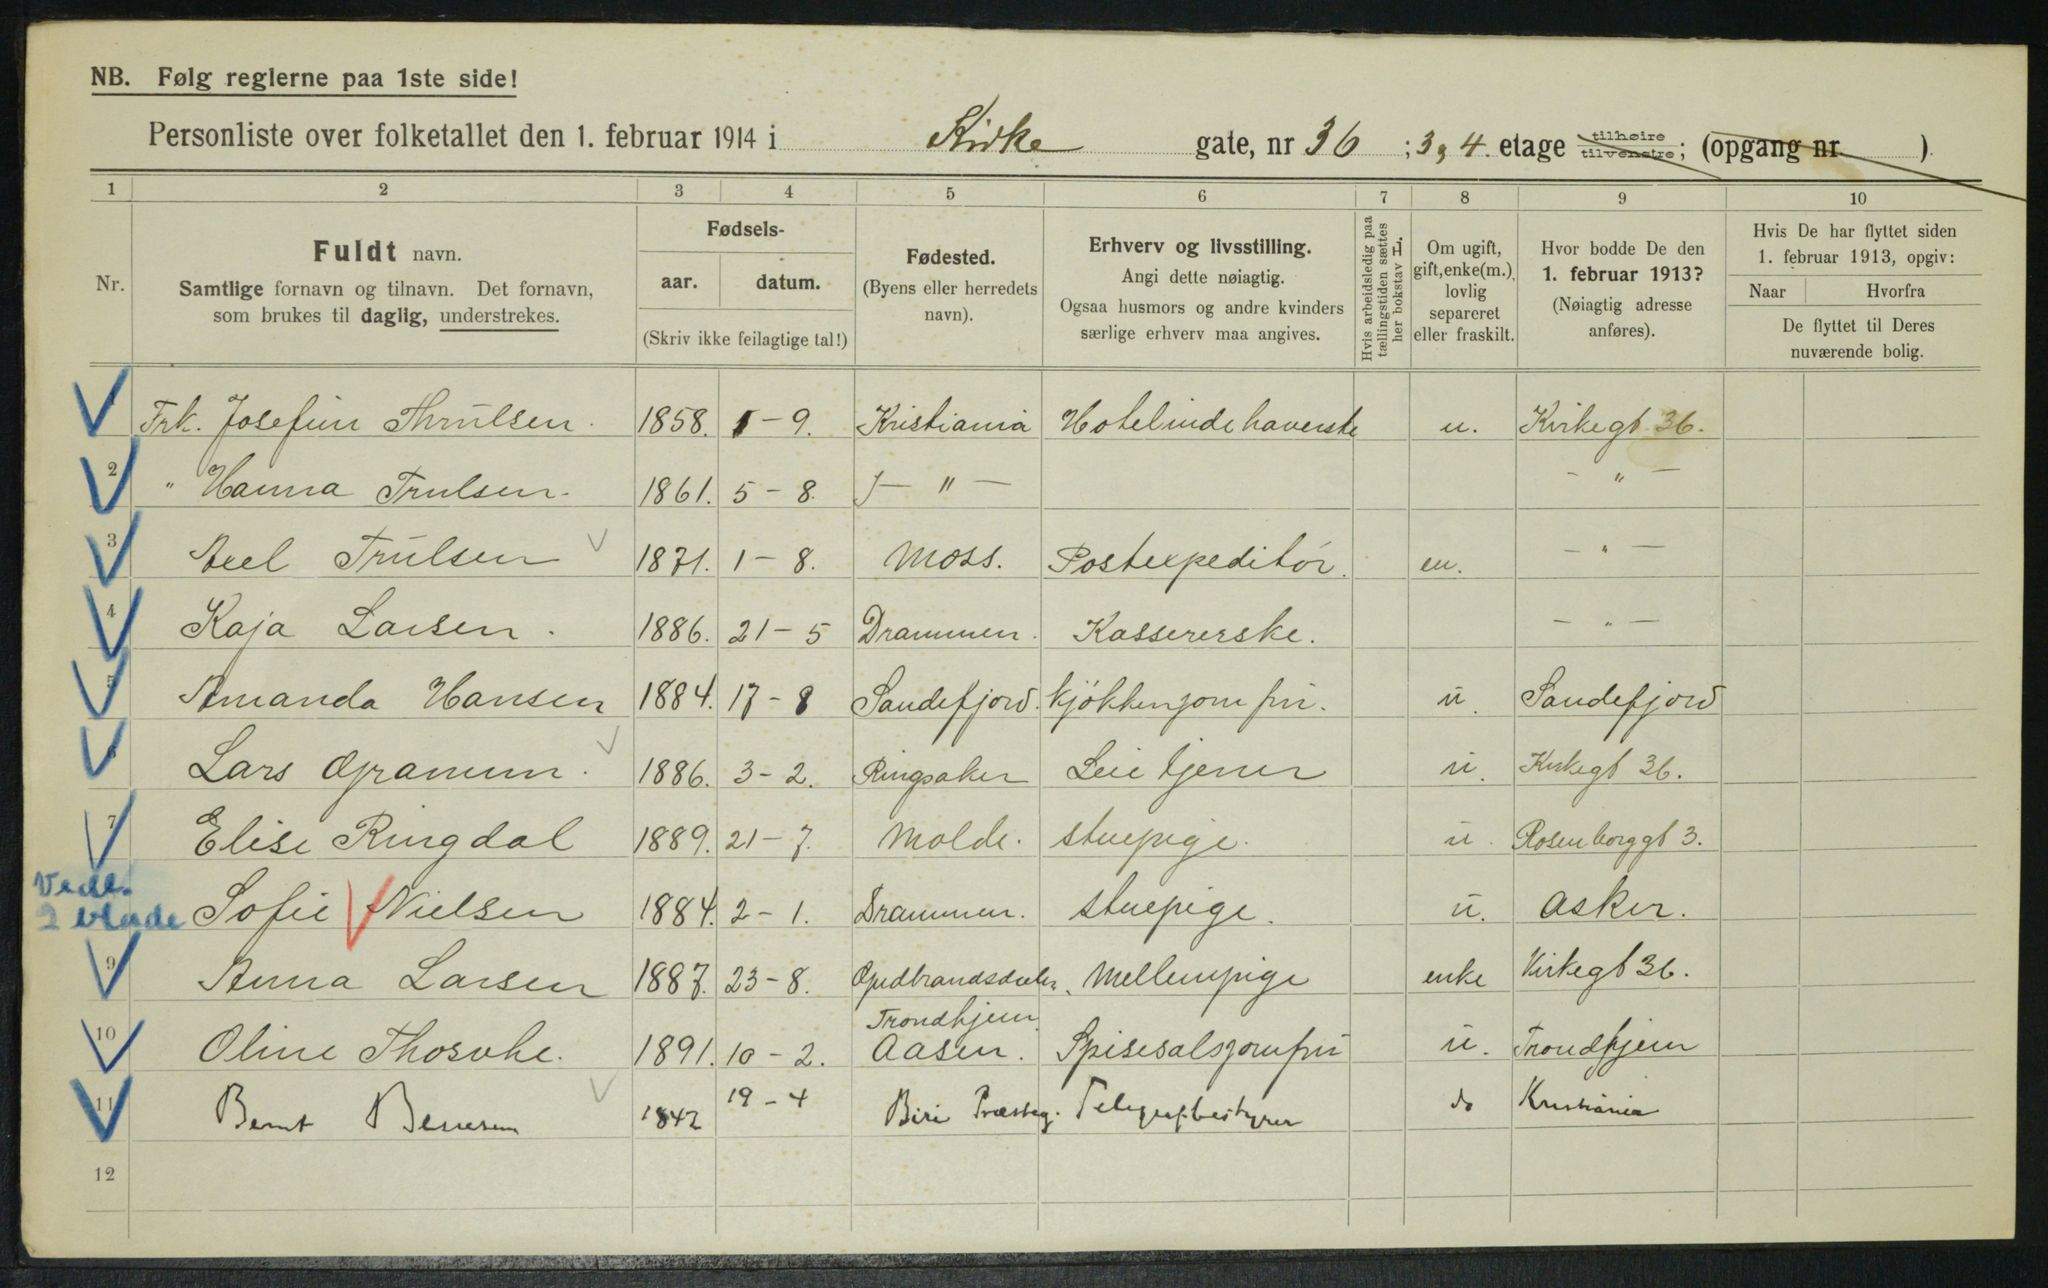 NB. Følg reglerne paa 1ste side!
Personliste over folketallet den 1. februar 1914 i Kirke gate, nr 36 ; 3 og 4. etage tilhøire tilvenstre; (opgang nr )
1 2 3 4 5 6 7 8 9 10
Nr.
Fuldt navn.
Samtlige fornavn og tilnavn. Det fornavn,
som brukes til daglig, understrekes.
Fødsels-
aar. datum.
(Skriv ikke feilagtige tal!)
Fødested.
(Byens eller herredets
navn).
Erhverv og livsstilling.
Angi dette nøiagtig.
Ogsaa husmors og andre kvinders
særlige erhverv maa angives.
Hvis arbeidsledig paa
tællingstiden sættes
her bokstav L.
Om ugift,
gift, enke(m.),
lovlig
separeret
eller fraskilt.
Hvor bodde De den
1. februar 1913?
(Nøiagtig adresse
anføres).
Hvis De har flyttet siden
1. februar 1913, opgiv:
Naar Hvorfra
De flyttet til Deres
nuværende bolig.
Frk. Josefin Thrulsen. 1858. 1-9. Kristiania Hotelindehaverske u. Kirkegt 36.
2 " Hanna Trulsen. 1861. 5-8. — " — — " —
3 Axel Trulsen 1871. 1-8. Moss. Postexpeditör. en. — " —
4 Kaja Larsen. 1886. 21-5 Drammen. Kassererske. — " —
5 Amanda Hansen 1884. 17-8 Sandefjord. kjökkenjomfru. u. Sandefjord
6 Lars Gramum. 1886. 3-2. Ringsaker Leietjener u. Kirkegt 36.
7 Elise Ringdal 1889. 21-7. Molde. stuepige. u. Rosenborggt 3.
Vedl.
2 blade Sofie Nielsen 1884. 2-1. Drammen. stuepige. u. Asker.
9 Anna Larsen 1887. 23-8. Gudbrandsdalen. Mellempige enke Kirkegt 36.
Trondhjem
10 Oline Thosvhe. 1891. 10-2. Aasen. Spisesalsjomfru u. Trondhjem
11 Bernt Bennesen 1842 19-4 Biri Præsteg. Telegrafbestyrer do Kristiania
12